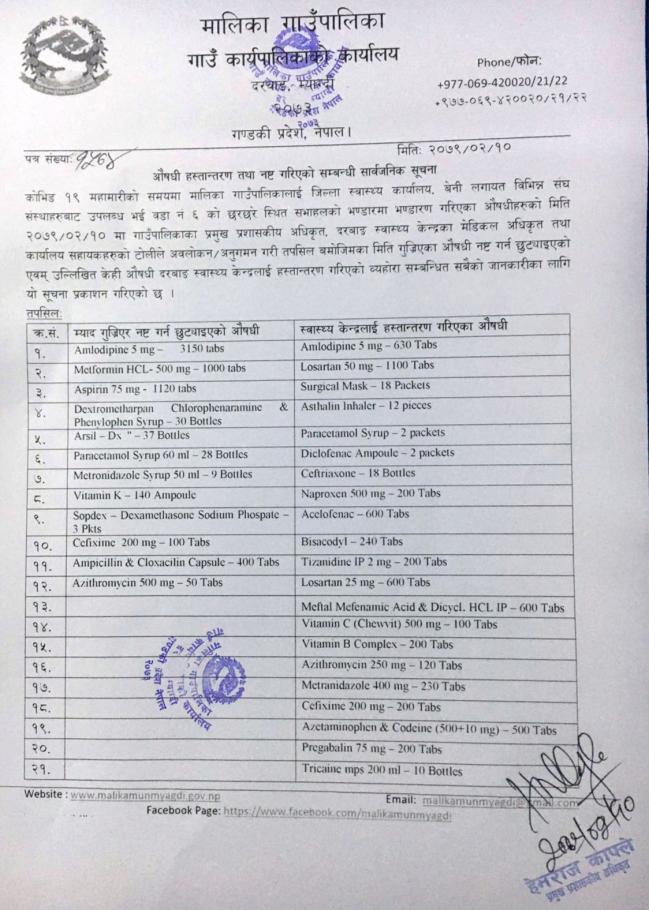 मालिका गाउँपालिका
गाउँ कार्यपालिकाको कार्यालय
दरबाङ, म्याग्दी
२०७३
गण्डकी प्रदेश, नेपाल।
Phone/फोन:
+977-069-420020/21/22
+९७७-०६९-४२००२०/२१/२२
पत्र संख्याः
मितिः २०७९/०२/१०
औषधी हस्तान्तरण तथा नष्ट गरिएको सम्बन्धी सार्वजनिक सूचना
कोभिड १९ महामारीको समयमा मालिका गाउँपालिकालाई जिल्ला स्वास्थ्य कार्यालय, बेनी लगायत विभिन्न संघ
संस्थाहरुबाट उपलब्ध भई वडा नं ६ को छरछरे स्थित सभाहलको भण्डारमा भण्डारण गरिएका औषधीहरुको मिति
२०७९/०२/१० मा गाउँपालिकाका प्रमुख प्रशासकीय अधिकृत, दरबाङ स्वास्थ्य केन्द्रका मेडिकल अधिकृत तथा
कार्यालय सहायकहरुको टोलीले अवलोकन/अनुगमन गरी तपसिल बमोजिमका मिति गुज्रिएका औषधी नष्ट गर्न छुट्याइएको
एवम् उल्लिखित केही औषधी दरबाङ स्वास्थ्य केन्द्रलाई हस्तान्तरण गरिएको व्यहोरा सम्बन्धित सबैको जानकारीका लागि
यो सूचना प्रकाशन गरिएको छ ।
तपसिलः
क्र.सं. म्याद गुज्रिएर नष्ट गर्न छुट्याइएको औषधी स्वास्थ्य केन्द्रलाई हस्तान्तरण गरिएका औषधी
१. Amlodipine 5 mg – 3150 tabs Amlodipine 5 mg – 630 Tabs
२. Metformin HCL- 500 mg – 1000 tabs Losartan 50 mg – 1100 Tabs
३. Aspirin 75 mg - 1120 tabs Surgical Mask – 18 Packets
४. Dextrometharpan Chlorophenaramine & Asthalin Inhaler – 12 pieces
Phenylophen Syrup – 30 Bottles
५. Arsil – Dx " – 37 Bottles Paracetamol Syrup – 2 packets
६. Paracetamol Syrup 60 ml – 28 Bottles Diclofenac Ampoule – 2 packets
७. Metronidazole Syrup 50 ml – 9 Bottles Ceftriaxone – 18 Bottles
८. Vitamin K – 140 Ampoule Naproxen 500 mg – 200 Tabs
९. Sopdex – Dexamethasone Sodium Phospate – Acelofenac – 600 Tabs
3 Pkts
१०. Cefixime 200 mg – 100 Tabs Bisacodyl – 240 Tabs
११. Ampicillin & Cloxacilin Capsule – 400 Tabs Tizanidine IP 2 mg – 200 Tabs
१२. Azithromycin 500 mg – 50 Tabs Losartan 25 mg – 600 Tabs
१३. Meftal Mefenamic Acid & Dicycl. HCL IP – 600 Tabs
१४. Vitamin C (Chewvit) 500 mg – 100 Tabs
१५. Vitamin B Complex – 200 Tabs
१६. Azithromycin 250 mg – 120 Tabs
१७. Metranidazole 400 mg – 230 Tabs
१८. Cefixime 200 mg – 200 Tabs
१९. Azetaminophen & Codeine (500+10 mg) – 500 Tabs
२०. Pregabalin 75 mg – 200 Tabs
२१. Tricaine mps 200 ml – 10 Bottles
Website : www.malikamunmyagdi.gov.np
Email: malikamunmyagdi@gmail.com
Facebook Page: https://www.facebook.com/malikamunmyagdi
२०७९/०२/१०
हेमराज काफ्ले
प्रमुख प्रशासकीय अधिकृत